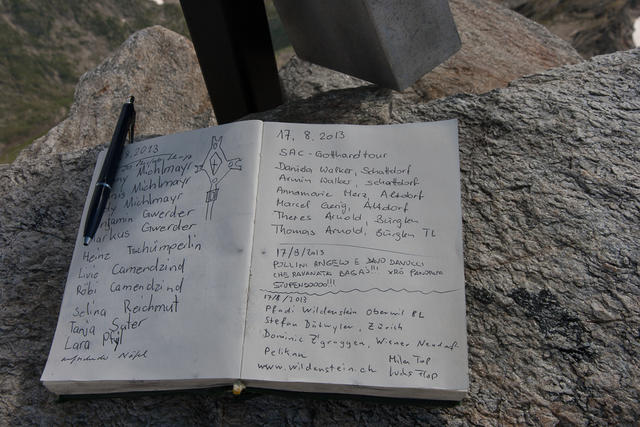 8.2013
Michlmayr
Michlmayr
Michlmayr
Gwerder
Markus Gwerder
Heinz Tschümperlin
Livio Camendzind
Röbi Camendzind
Selina Reichmut
Tanja Suter
Lara
17.8.2013
SAC-Gotthardtour
Daniela Walker, Schattdorf
Armin Walker, Schattdorf
Annamarie Herz, Altdorf
Marcel Gerig, Altdorf
Theres Arnold, Bürglen
Thomas Arnold, Bürglen TL
17/8/2013
POLLINI ANGELO E DAVO DANUCCI
CHE RAVANATA BAGAJ!!! PANORAMA
STUPENDOOOO!!!
17/8/2013
Pfadi Wildenstein Oberwil BL
Stefan Dätwyler, Zürich
Dominic Z'graggen, Wiener
Pelikan
www.wildenstein.ch